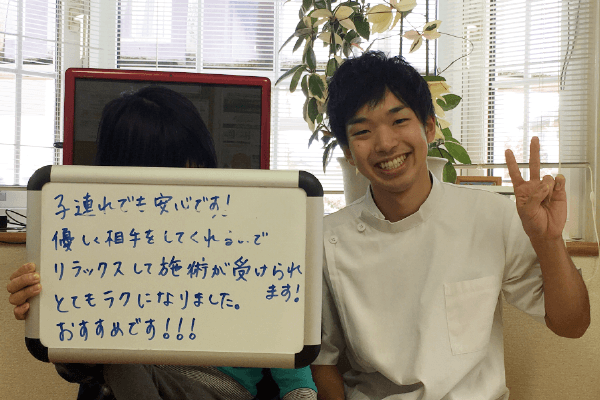 子連れでも安心です！
優しく相手をしてくれるので
リラックスして施術が受けられ
ます！
とてもラクになりました。
おすすめです！！！